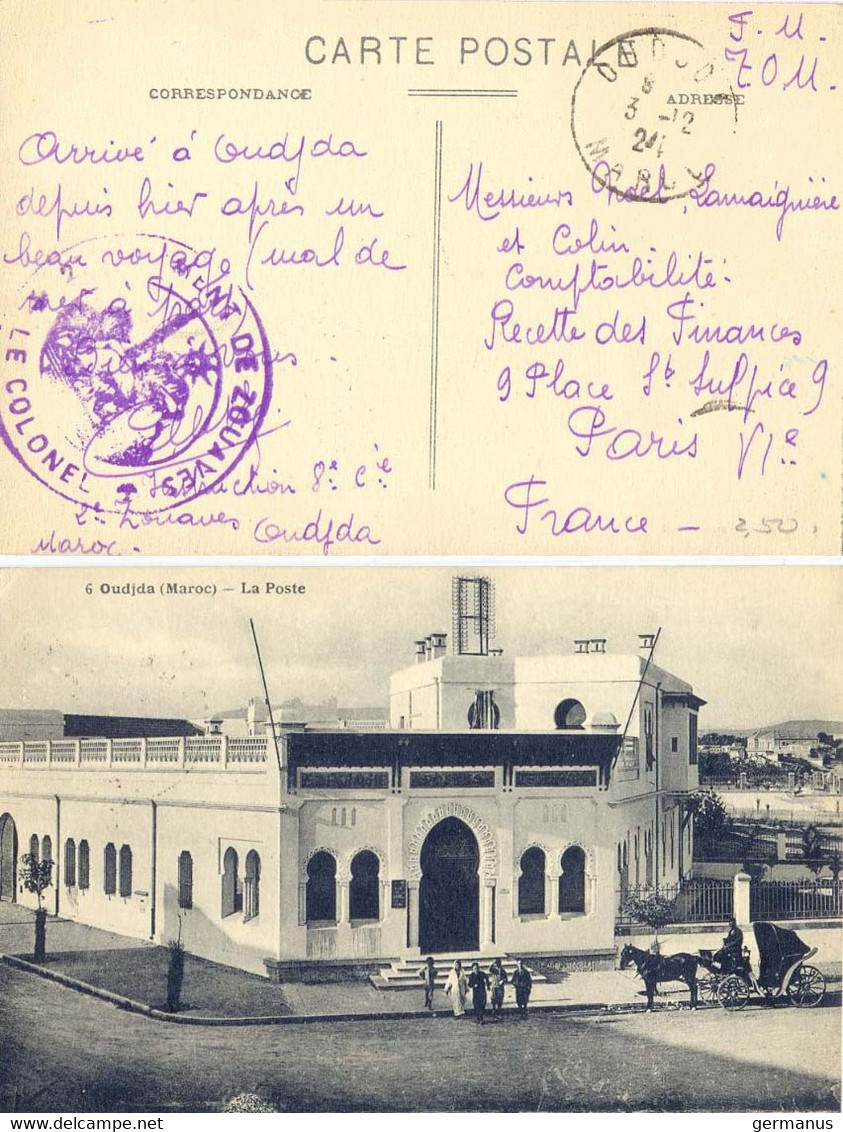 CARTE POSTALE
CORRESPONDANCE
ADRESSE
F. M.
TOM.
OUDJDA
8
3 -12
24
MAROC
Arrivé à Oudjda
depuis hier après un
beau voyage (mal de
mer à part)
Bien à vous.
Instruction 8e Cie
2e Zouaves Oudjda
Maroc.
MENT DE ZOUAVES
LE COLONEL
Messieurs Lamaignière
et Colin.
Comptabilité.
Recette des Finances
9 Place St Sulpice 9
Paris VIe
France —
2,50
6 Oudjda (Maroc) — La Poste
germanus